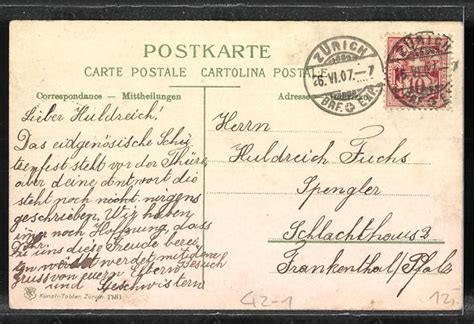 POSTKARTE
CARTE POSTALE CARTOLINA POSTALE
Correspondance — Mittheilungen
Adresse
ZÜRICH
26.VI.07.–7
BRF. EXP.
ZÜRICH
26.VI.07.–7
BRF. EXP.
10
Lieber Huldreich!
Das eidgenösische Schüt
zenfest steht vor der Thüre
aber deine antwort die
steht noch nicht nirgens
geschrieben. Wir haben
imer noch Hoffnung, dass
Ihr
uns diese Freude berei
ten werdet mit
Besuch
gruss von euern Eltern
und Geschwistern
Herrn
Huldreich Fuchs
Spengler
Schlachthaus 2
Frankenthal/Pfalz
Künzli-Tobler, Zürich
G2-1
12.